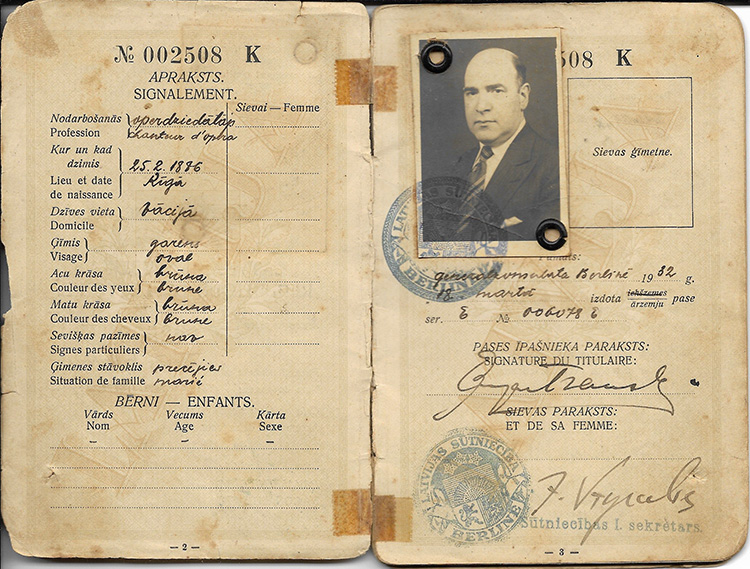 № 002508 K
APRAKSTS.
SIGNALEMENT.
Sievai — Femme
Nodarbošanās operdziedātājs
Profession chanteur d'opéra
Kur un kad
dzimis 25.2.1886
Lieu et date Rīgā
de naissance
Dzīves vieta Vācijā
Domicile
Ģīmis garens
Visage oval
Acu krāsa brūna
Couleur des yeux brune
Matu krāsa brūna
Couleur des cheveux brune
Sevišķas pazīmes nav
Signes particuliers
Ģimenes stāvoklis precējies
Situation de famille marié
BĒRNI — ENFANTS.
Vārds Vecums Kārta
Nom Age Sexe
– – –
— 2 —
508 K
Sievas ģimetne.
LATVIJAS SŪTN
BERLINE
Pamats:
ģenerālkonsulata Berlīnē 1932 g.
18. martā izdota iekšzemes pase
ārzemju
ser. № 006078
PASES ĪPAŠNIEKA PARAKSTS:
SIGNATURE DU TITULAIRE:
SIEVAS PARAKSTS:
ET DE SA FEMME:
LATVIJAS SŪTNIECĪBA
BERLINE
Sūtniecības I. sekretārs.
— 3 —